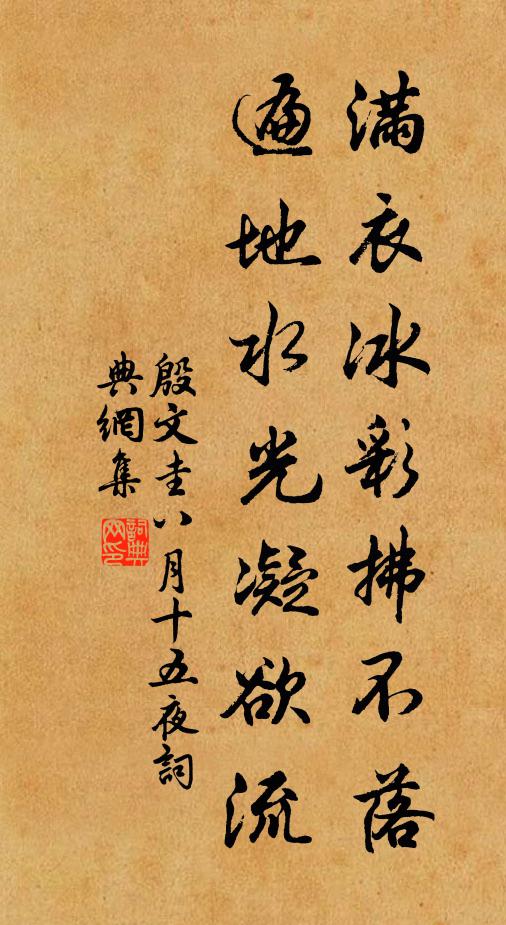 滿衣冰彩拂不落
遍地水光凝欲流
殷文圭八月十五夜詞
典網集
詞典網印